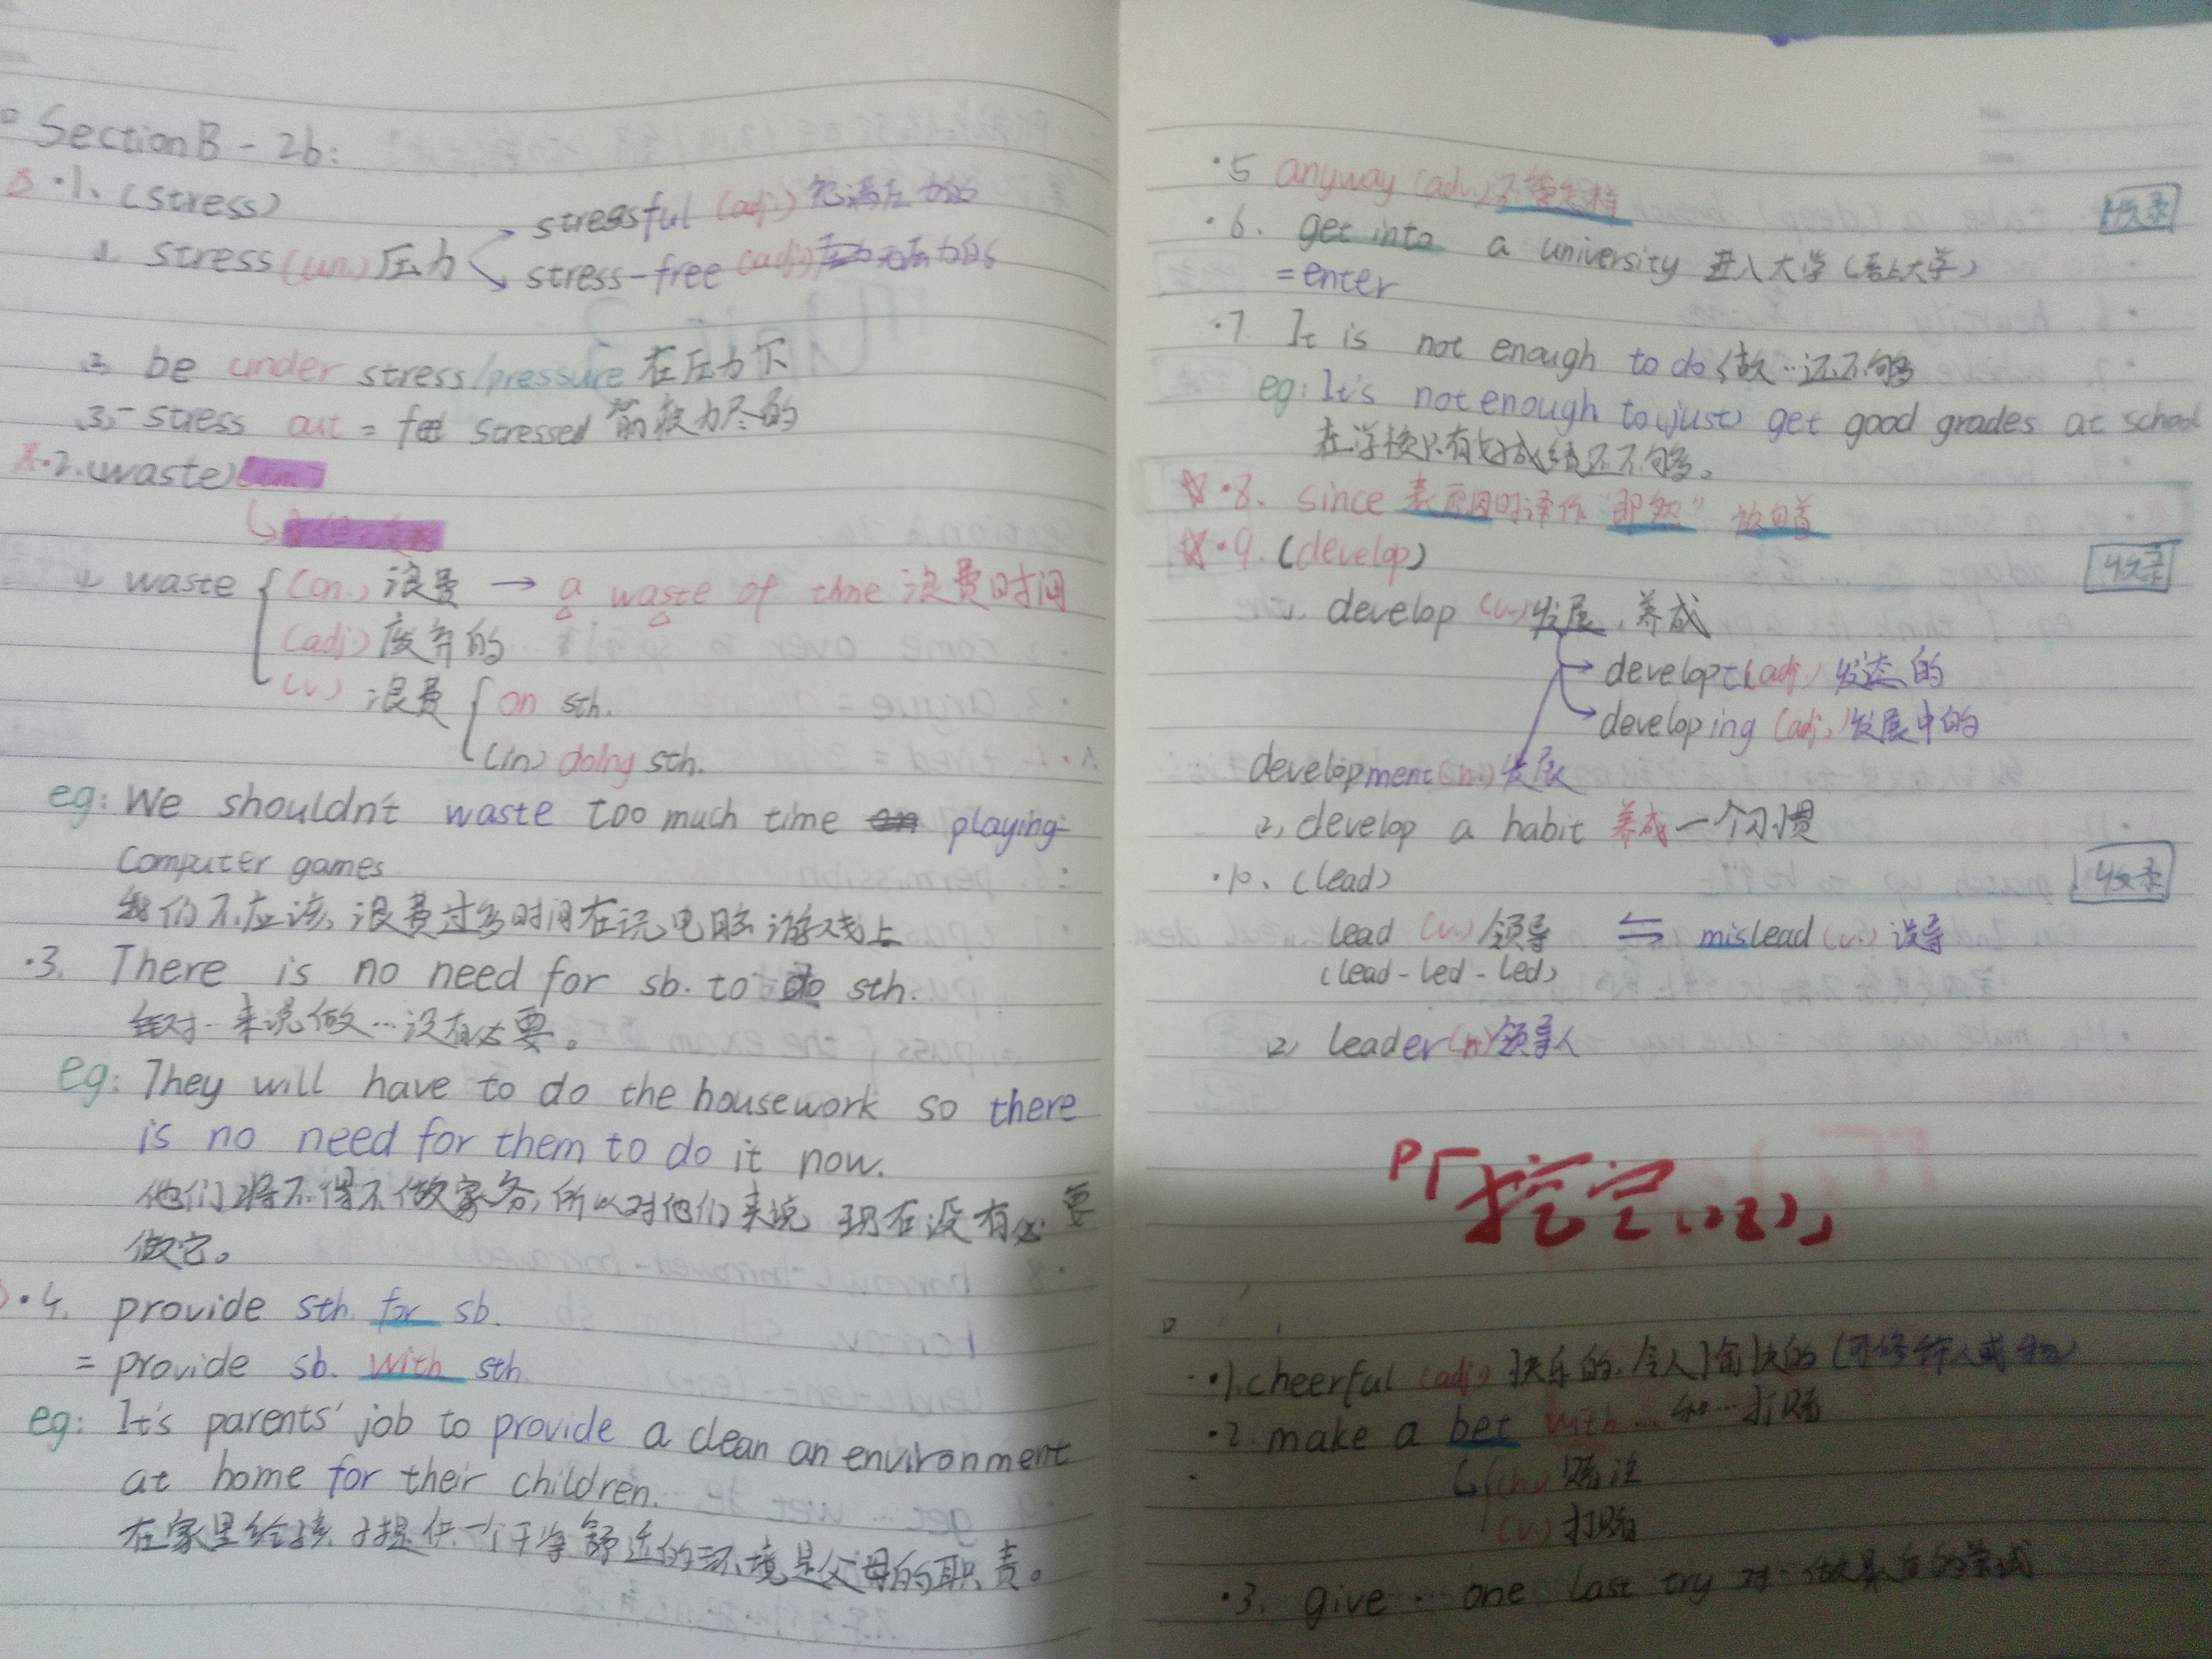 Section B - 2b:
·1. (stress)
1, stress (un.) 压力
stressful (adj) 充满压力的
stress-free (adj) 无压力的
2, be under stress/pressure 在压力下
3, - stress out = stressed 筋疲力尽的
·2. (waste)
1, waste (n.) 浪费 → a waste of time 浪费时间
(adj) 废弃的
(v.) 浪费 on sth.
(in) doing sth.
eg: We shouldn't waste too much time playing
computer games
我们不应该浪费过多时间在玩电脑游戏上
·3. There is no need for sb. to do sth.
对…来说做…没有必要。
eg: They will have to do the housework so there
is no need for them to do it now.
他们将不得不做家务,所以对他们来说 现在没有必要
做它。
·4. provide sth. for sb.
= provide sb. with sth.
eg: It's parents' job to provide a clean an environment
at home for their children.
在家里给孩子提供一个干净舒适的环境是父母的职责。
·5 anyway (adv.) 不管怎样
收录
·6. get into a university 进入大学 (考上大学)
= enter
·7. It is not enough to do 做…还不够
eg: It's not enough to (just) get good grades at school
在学校只有好成绩还不够。
·8. since 表原因时译作 "即然" 放句首
·9. (develop)
收录
1, develop (v.) 发展,养成
developed (adj) 发达的
developing (adj) 发展中的
development (n.) 发展
2, develop a habit 养成一个习惯
·10. (lead)
收录
lead (v.) 领导 ⇋ mislead (v.) 误导
(lead - led - led)
2, leader (n) 领导人
「挖空(2B)」
·1. cheerful (adj) 快乐的,令人愉快的 (可修饰人或物)
·2. make a bet with … 和…打赌
(n.) 赌注
(v.) 打赌
·3. give … one last try 对…做最后的尝试